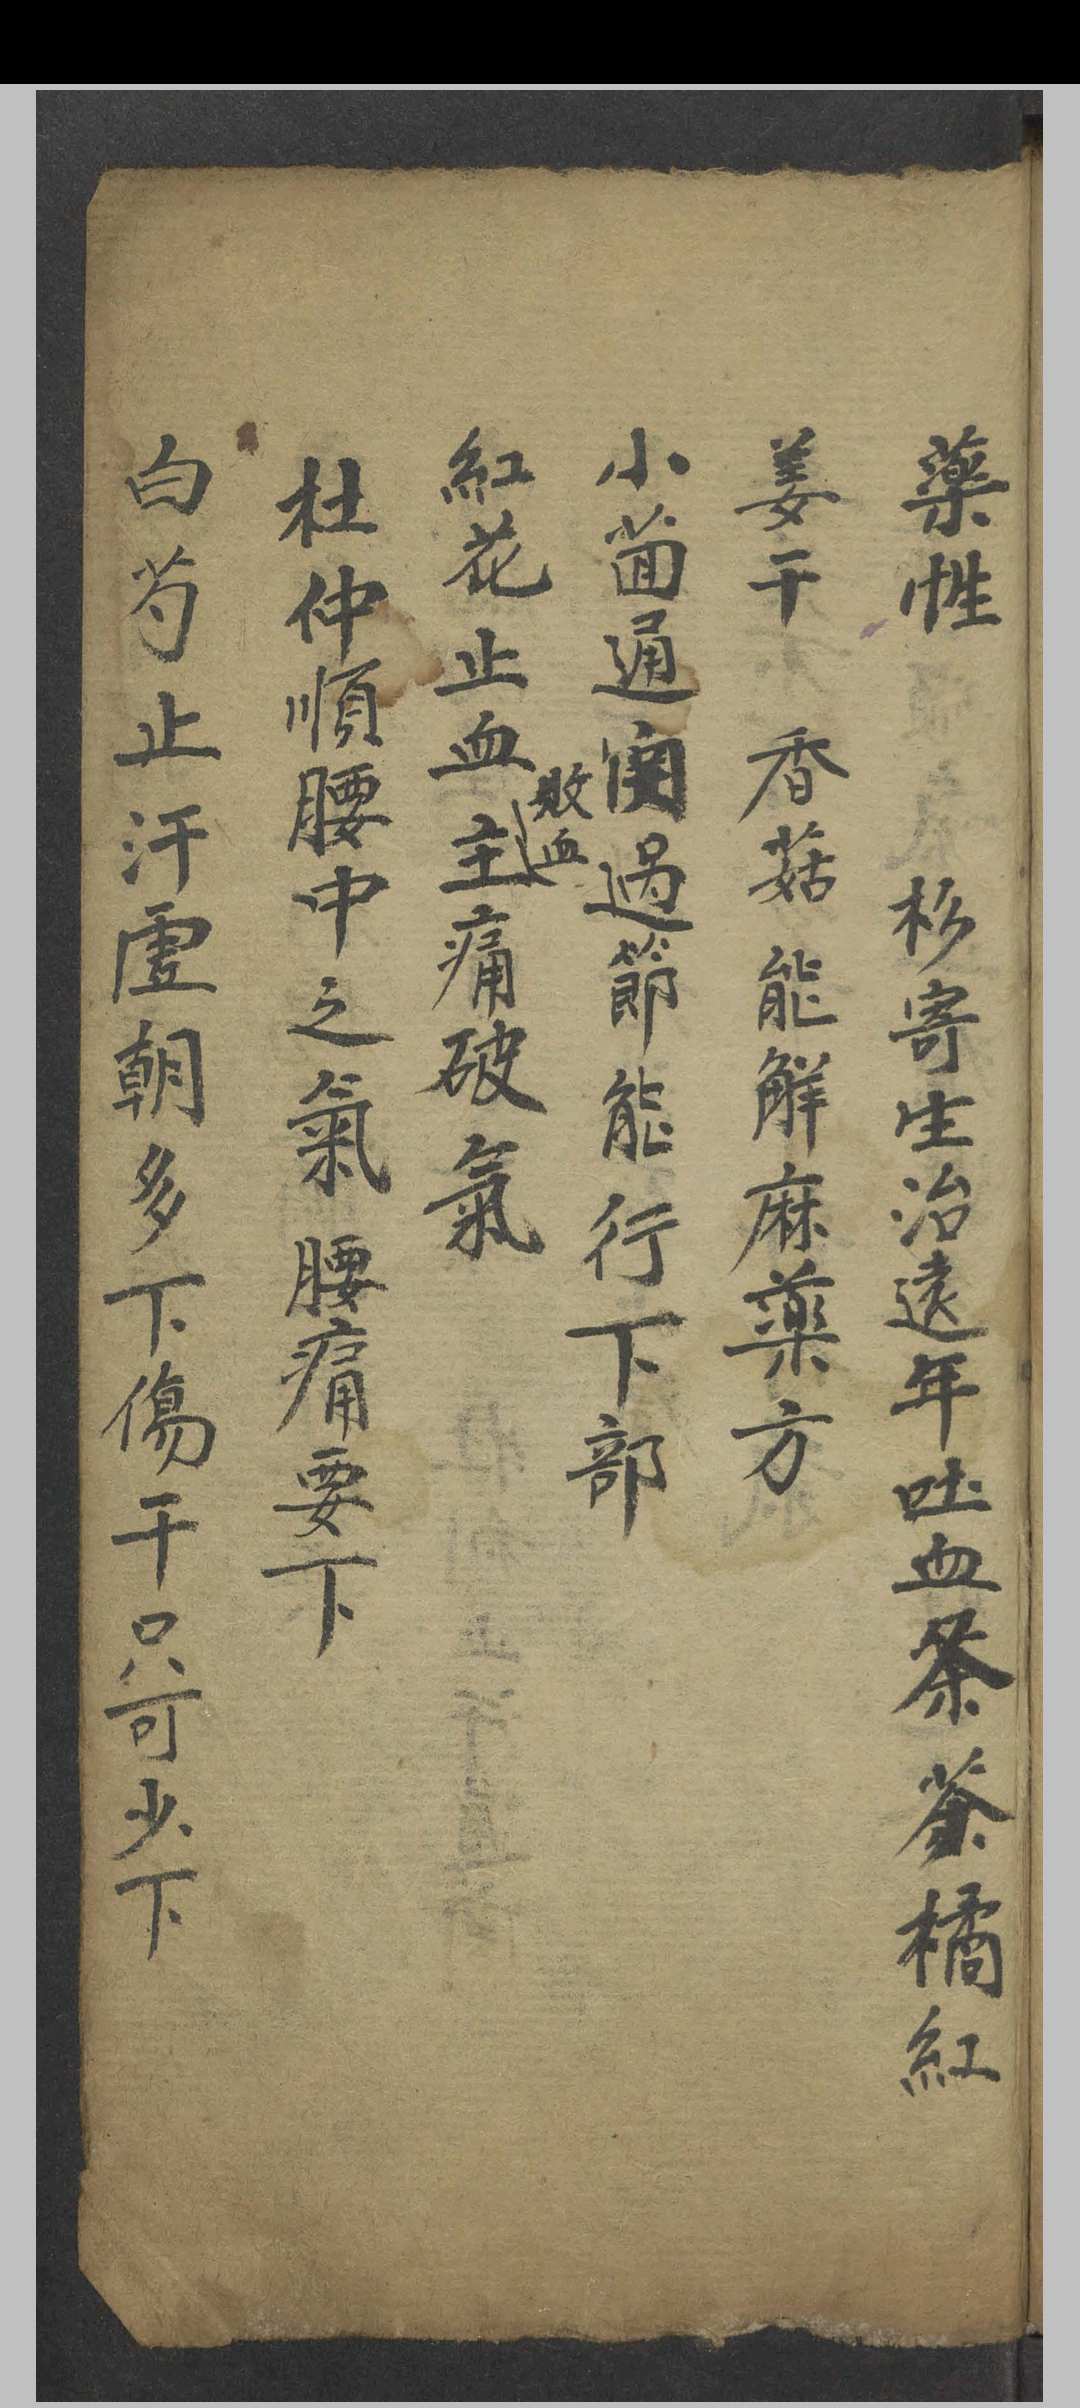 藥性 杉寄生治遠年吐血茶荃橘紅
姜干 香菇能解麻藥方
小茴通関過節能行下部
紅花止血主痛破氣
敗血
杜仲順腰中之氣腰痛要下
白芍止汗虛朝多下傷干只可少下